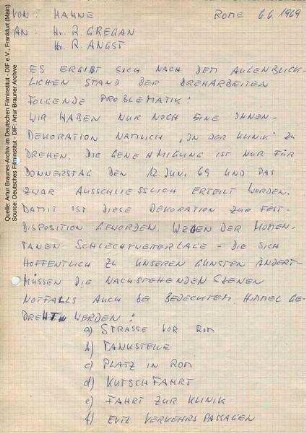 VON: HAHNE ROME 6.6.1969
AN: Hr. R. GREGAN
Hr. R. ANGST
ES ERGIBT SICH NACH DEM AUGENBLICK-
LICHEN STAND DER DREHARBEITEN
FOLGENDE PROBLEMATIK:
WIR HABEN NUR NOCH EINE INNEN-
DEKORATION NÄMLICH „IN DER KLINIK" ZU
DREHEN. DIE GENEHMIGUNG IST NUR FÜR
DONNERSTAG DEN 12. JUN. 69 UND DAS
ZWAR AUSSCHLIESSLICH ERTEILT WORDEN.
DAMIT IST DIESE DEKORATION ZUR FEST-
DISPOSITION GEWORDEN. WEGEN DER MOMEN-
TANEN SCHLECHTWETTERLAGE - DIE SICH
HOFFENTLICH ZU UNSEREN GUNSTEN ÄNDERT -
MÜSSEN DIE NACHSTEHENDEN SZENEN
NOTFALLS AUCH BEI BEDECKTEM HIMMEL GE-
DREHT WERDEN:
a) STRASSE VOR ROM
b) TANKSTELLE
c) PLATZ IN ROM
d) KUTSCHFAHRT
e) FAHRT ZUR KLINIK
f) EVTL VERKEHRS PASSAGEN
Quelle: Artur Brauner-Archiv im Deutschen Filminstitut - DIF e.V., Frankfurt (Main)
Source: Deutsches Filminstitut - DIF: Artur Brauner Archive